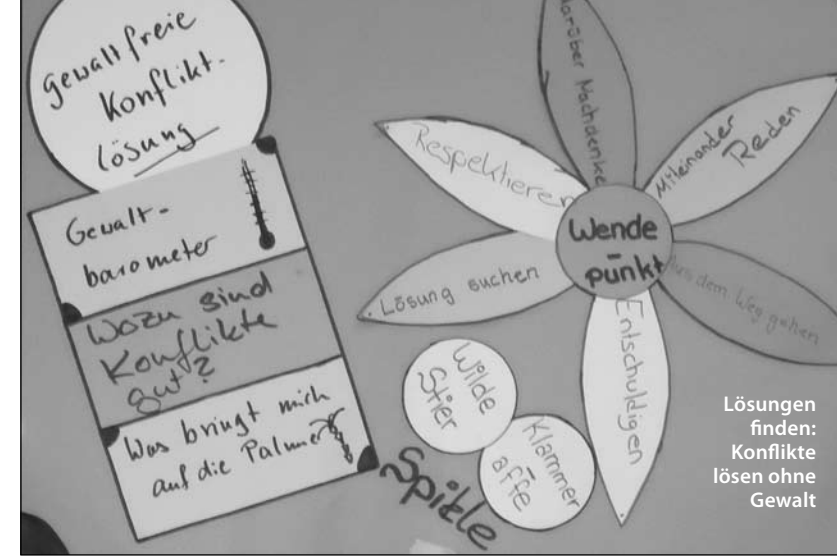 Gewaltfreie
Konflikt-
lösung
Gewalt-
barometer
Wozu sind
Konflikte
gut?
Was bringt mich
auf die Palme
Respektieren
Darüber Nachdenken
Miteinander
Reden
Wende
-
punkt
Lösung suchen
Aus dem Weg gehen
Entschuldigen
Wilde
Stier
Klammer
-
affe
Spiele
Lösungen
finden:
Konflikte
lösen ohne
Gewalt